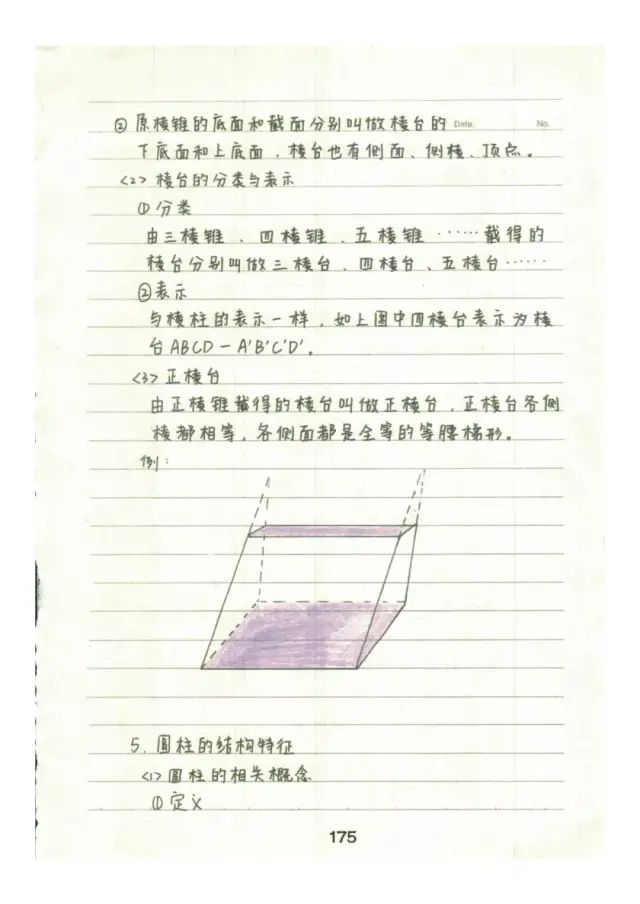 ②原棱锥的底面和截面分别叫做棱台的 Date. No.
下底面和上底面，棱台也有侧面、侧棱、顶点。
<2> 棱台的分类与表示
①分类
由三棱锥、四棱锥、五棱锥……截得的
棱台分别叫做三棱台、四棱台、五棱台……
②表示
与棱柱的表示一样，如上图中四棱台表示为棱
台ABCD-A'B'C'D'。
<3>正棱台
由正棱锥截得的棱台叫做正棱台，正棱台各侧
棱都相等，各侧面都是全等的等腰梯形。
例：
5. 圆柱的结构特征
<1>圆柱的相关概念
①定义
175